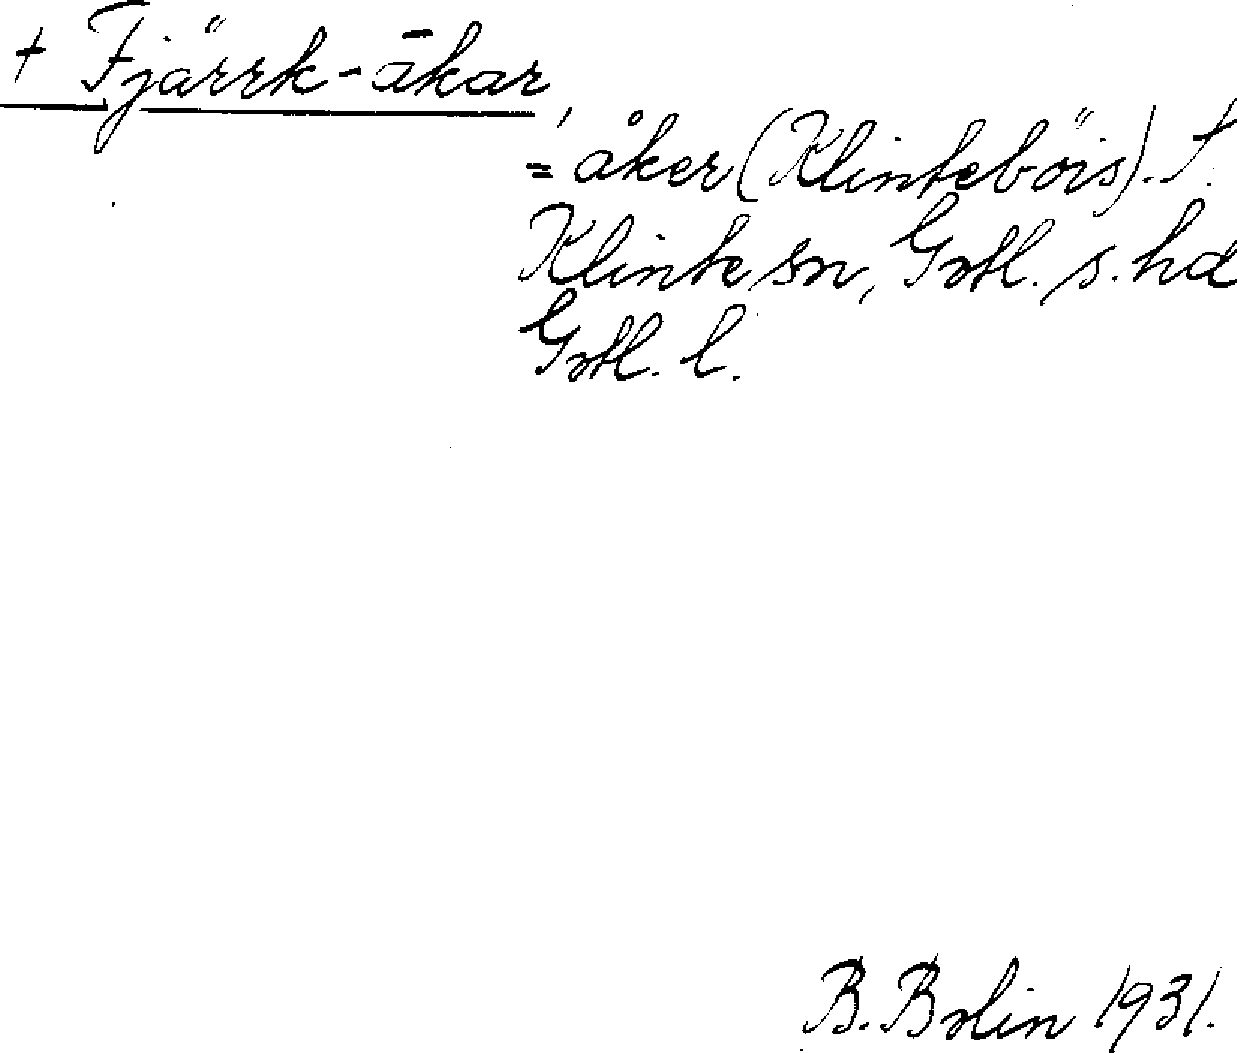 + Fjärrk-ākar,
= åker (Klinteböis). †.
Klinte sn, Gotl. s. hd
Gotl. l.
B. Bolin 1931.